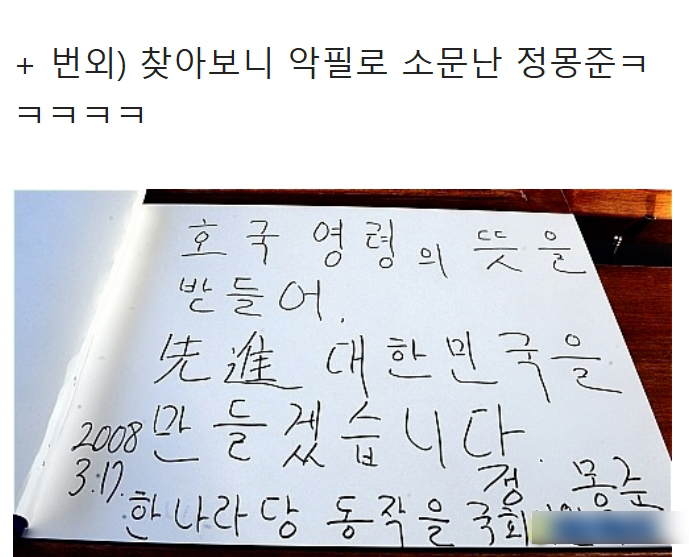 + 번외) 찾아보니 악필로 소문난 정몽준ㅋ
ㅋㅋㅋㅋ
호국 영령의 뜻을
받들어,
先進 대한민국을
만들겠습니다.
2008
3.17.
정 몽준
한나라당 동작을 국회